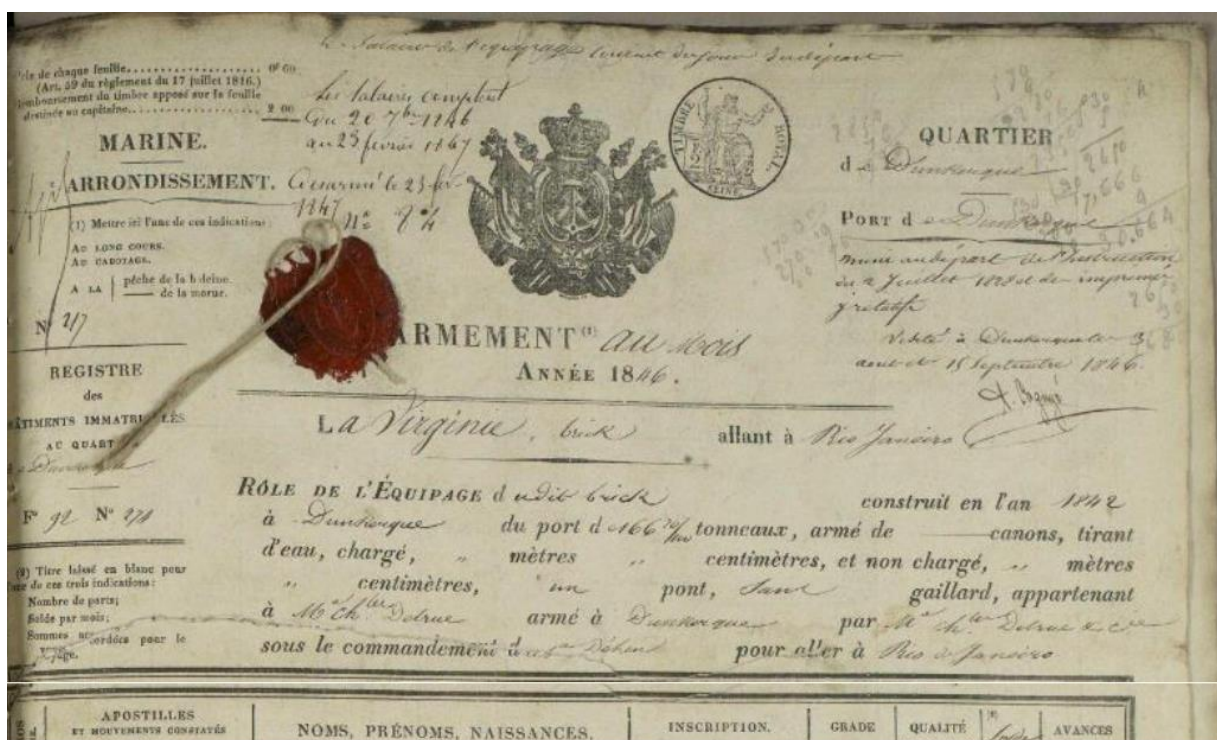 Le Salaire de l'équipage courent du jour du départ
Prix de chaque feuille.................. 0f 60
(Art. 59 du règlement du 17 juillet 1816.)
Remboursement du timbre apposé sur la feuille
destinée au capitaine.................. 2 00
Les salaires comptent
du 20 7bre 1846
au 23 février 1847
Désarmé le 23 fer
1847
N° 84
MARINE.
ARRONDISSEMENT.
(1) Mettre ici l'une de ces indications:
AU LONG COURS.
AU CABOTAGE.
A LA pêche de la baleine.
—— de la morue.
N° 217
REGISTRE
des
BÂTIMENTS IMMATRICULÉS
AU QUARTIER
de Dunkerque
F° 92 N° 274
(2) Titre laissé en blanc pour
l'une de ces trois indications:
Nombre de parts;
Solde par mois;
Sommes accordées pour le
voyage.
TIMBRE ROYAL.
SEINE
QUARTIER
de Dunkerque
PORT de Dunkerque
muni au départ de l'instruction
du 2 Juillet 1828 et de imprimé
Visité à Dunkerque les 3
aout et 15 Septembre 1846.
ARMEMENT (1) au mois
ANNÉE 1846.
La Virginie, brick allant à Rio Janeiro
RÔLE DE L'ÉQUIPAGE dudit brick construit en l'an 1842
à Dunkerque du port d 166 tonneaux, armé de —— canons, tirant
d'eau, chargé, " mètres " centimètres, et non chargé, " mètres
" centimètres, un pont, sans gaillard, appartenant
à Mr Ch. Delrue armé à Dunkerque par Mr Ch. Delrue & Cie
sous le commandement d pour aller à Rio de Janeiro
APOSTILLES
ET MOUVEMENTS CONSTATÉS
NOMS, PRÉNOMS, NAISSANCES,
INSCRIPTION.
GRADE
QUALITÉ
AVANCES